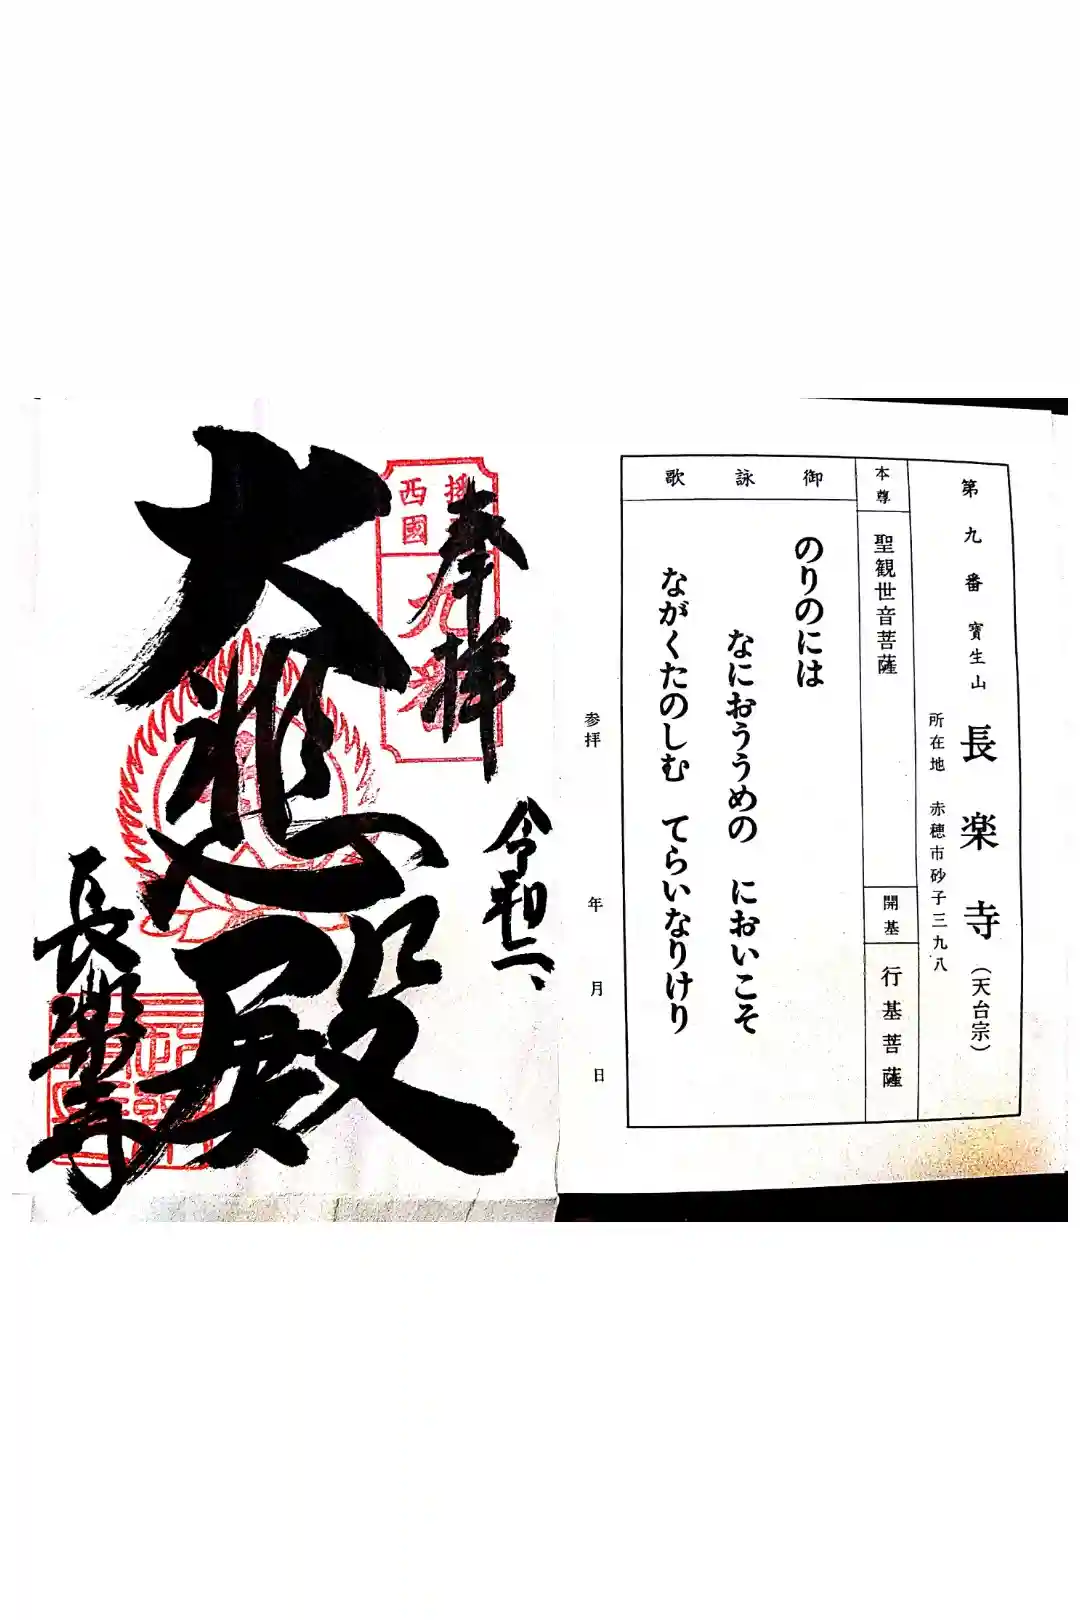 第九番 寳生山 長楽寺 (天台宗)
所在地 赤穂市砂子三九八
本尊
聖観世音菩薩
開基
行基菩薩
御詠歌
のりのには
なにおううめの においこそ
ながくたのしむ てらいなりけり
参拝 年 月 日
奉拝
西國
九番
令和二、
大悲殿
長楽寺